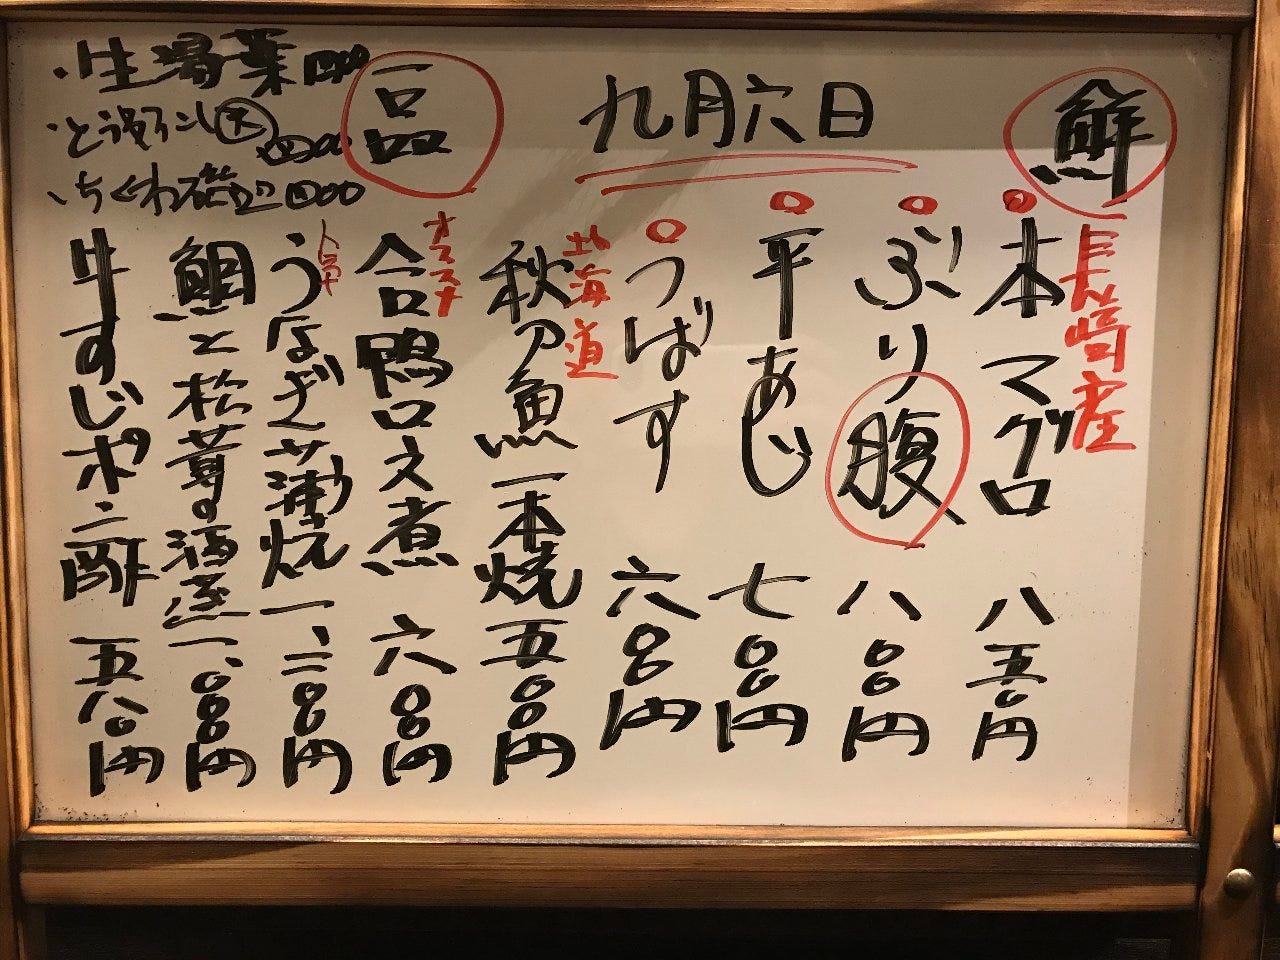 九月六日
鮮
長崎産
本マグロ 八五〇円
ぶり腹 八〇〇円
平あじ 七〇〇円
つばす 六〇〇円
北海道
秋刀魚一本焼 五〇〇円
一品
オススメ
合鴨ロース煮 六〇〇円
うなぎ蒲焼 一、二〇〇円
鯛と松茸の酒蒸 一、〇〇〇円
牛すじポン酢 五八〇円
・生湯葉
・ちくわ磯辺 四〇〇